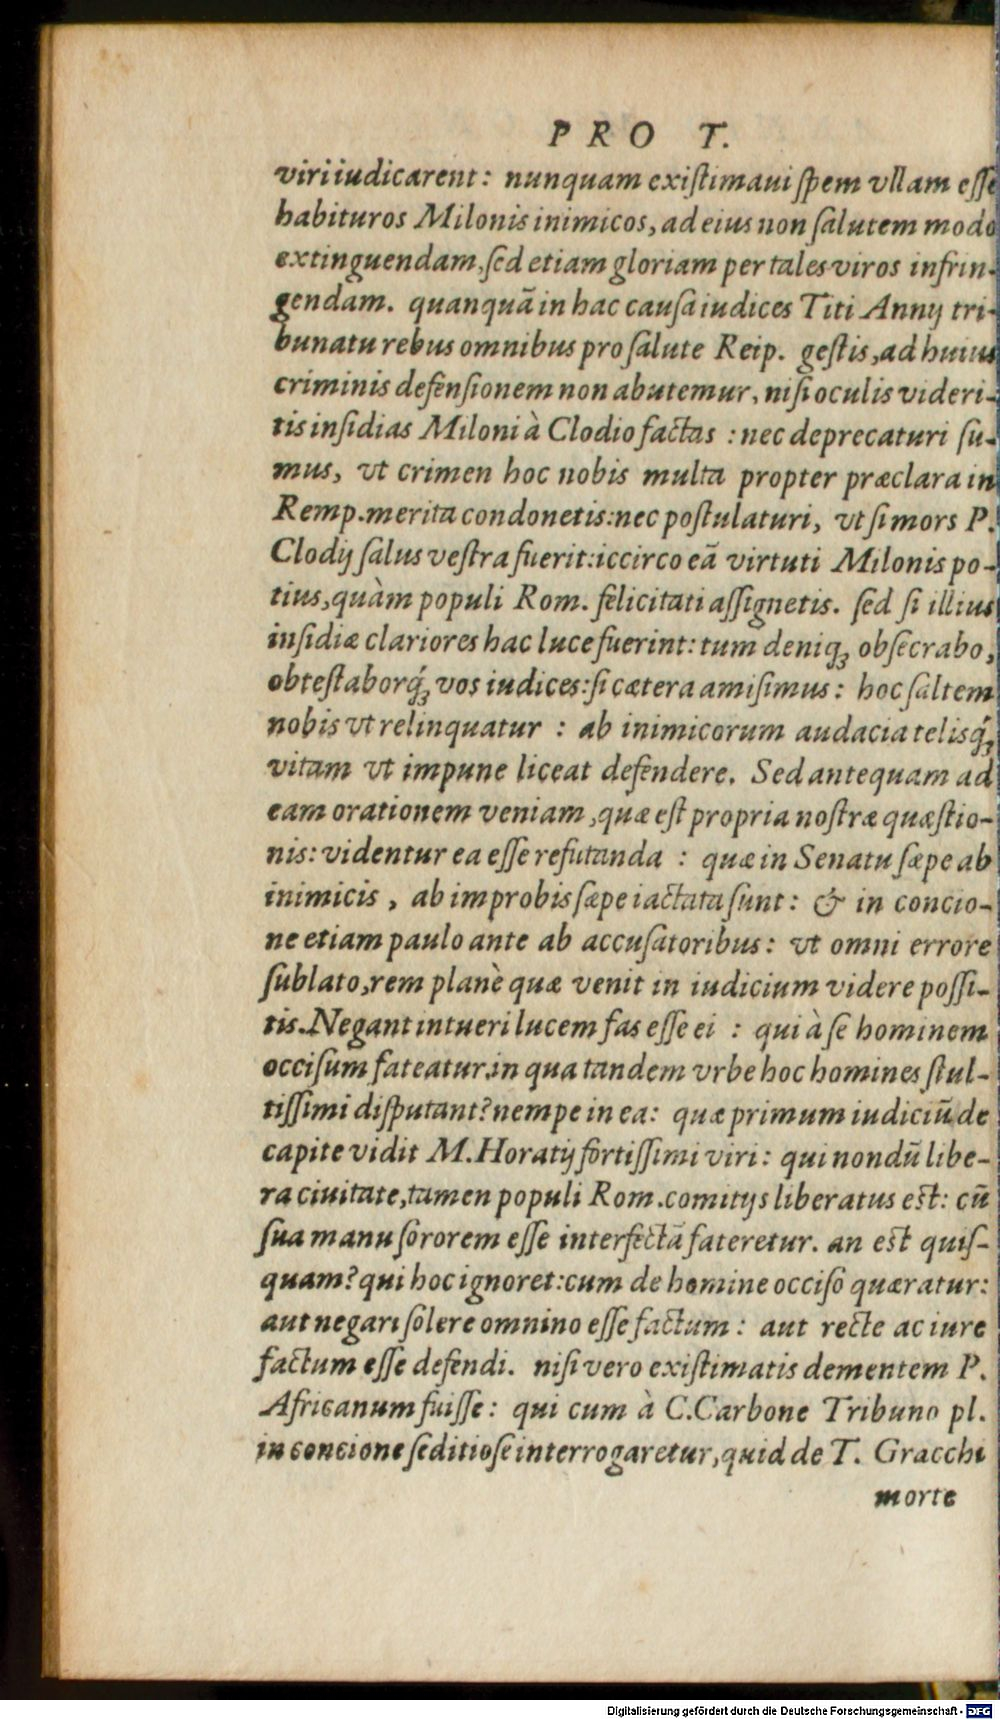 PRO T.
viri iudicarent: nunquam existimaui spem vllam esse
habituros Milonis inimicos, ad eius non salutem modo
extinguendam, sed etiam gloriam per tales viros infrin-
gendam. quanquā in hac causa iudices Titi Annij tri-
bunatu rebus omnibus pro salute Reip. gestis, ad huius
criminis defensionem non abutemur, nisi oculis videri-
tis insidias Miloni à Clodio factas : nec deprecaturi su-
mus, vt crimen hoc nobis multa propter præclara in
Remp. merita condonetis: nec postulaturi, vt si mors P.
Clodij salus vestra fuerit: iccirco eā virtuti Milonis po-
tius, quàm populi Rom. felicitati assignetis. sed si illius
insidiæ clariores hac luce fuerint: tum deniqꝫ obsecrabo,
obtestaborq́ꝫ vos iudices: si cætera amisimus: hoc saltem
nobis vt relinquatur : ab inimicorum audacia telisq́ꝫ
vitam vt impune liceat defendere. Sed antequam ad
eam orationem veniam, quæ est propria nostræ quæstio-
nis: videntur ea esse refutanda : quæ in Senatu sæpe ab
inimicis, ab improbis sæpe iactata sunt: & in concio-
ne etiam paulo ante ab accusatoribus: vt omni errore
sublato, rem planè quæ venit in iudicium videre possi-
tis. Negant intueri lucem fas esse ei : qui à se hominem
occisum fateatur. in qua tandem vrbe hoc homines stul-
tissimi disputant? nempe in ea: quæ primum iudiciū de
capite vidit M. Horatij fortissimi viri: qui nondū libe-
ra ciuitate, tamen populi Rom. comitijs liberatus est: cū
sua manu sororem esse interfectā fateretur. an est quis-
quam? qui hoc ignoret: cum de homine occiso quæratur:
aut negari solere omnino esse factum: aut recte ac iure
factum esse defendi. nisi vero existimatis dementem P.
Africanum fuisse: qui cum à C. Carbone Tribuno pl.
in concione seditiose interrogaretur, quid de T. Gracchi
morte
Digitalisierung gefördert durch die Deutsche Forschungsgemeinschaft - DFG